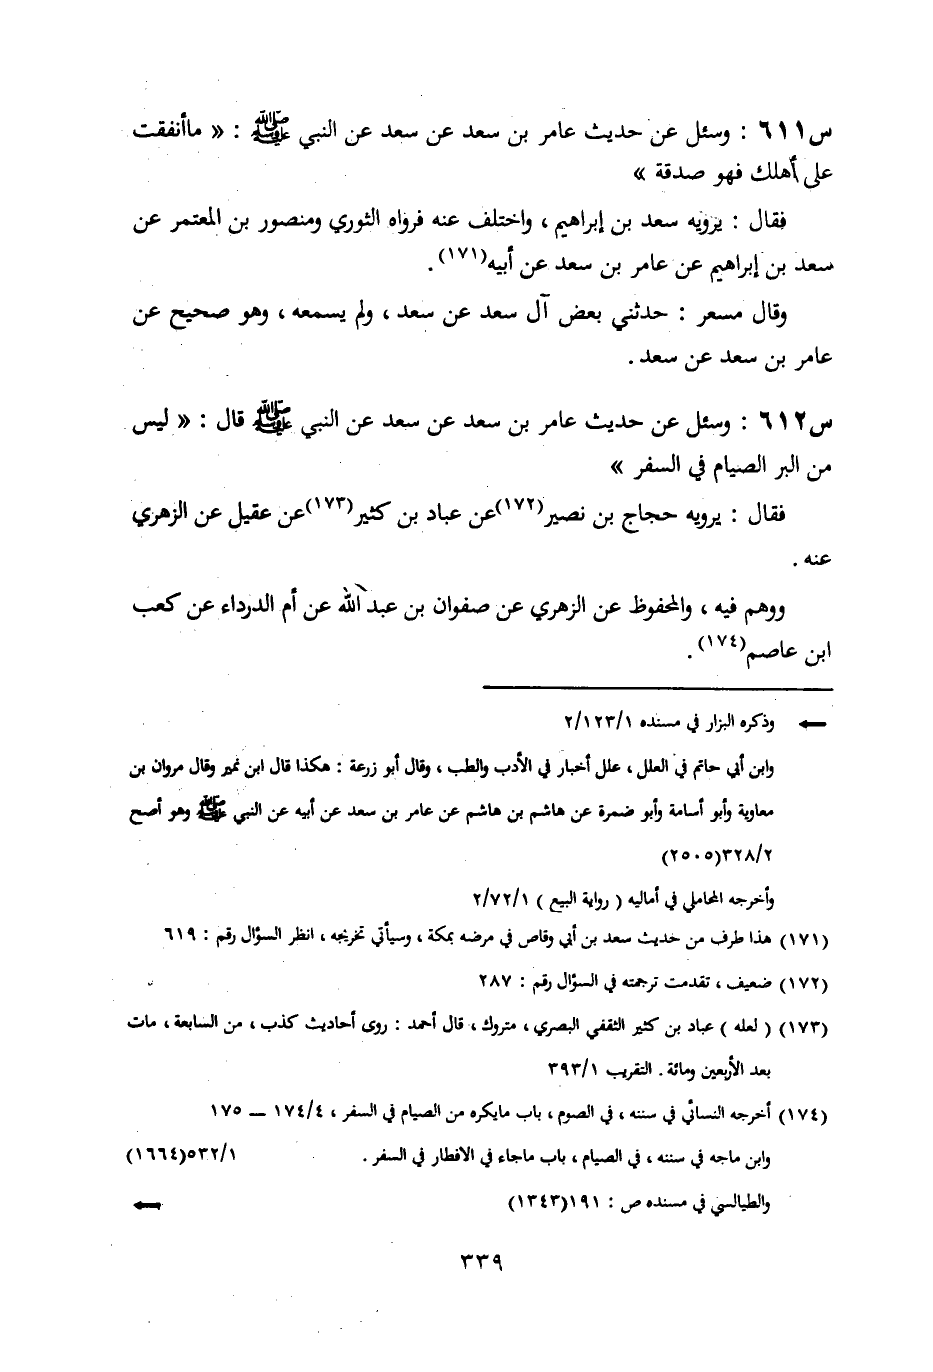 س٦١١ : وسئل عن حديث عامر بن سعد عن سعد عن النبي ﷺ : « ماأنفقت
على أهلك فهو صدقة »
فقال : يرويه سعد بن إبراهيم ، واختلف عنه فرواه الثوري ومنصور بن المعتمر عن
سعد بن إبراهيم عن عامر بن سعد عن أبيه(١٧١) .
وقال مسعر : حدثني بعض آل سعد عن سعد ، ولم يسمعه ، وهو صحيح عن
عامر بن سعد عن سعد .
س٦١٢ : وسئل عن حديث عامر بن سعد عن سعد عن النبي ﷺ قال : « ليس
من البر الصيام في السفر »
فقال : يرويه حجاج بن نصير(١٧٢)عن عباد بن كثير(١٧٣)عن عقيل عن الزهري
عنه .
ووهم فيه ، والمحفوظ عن الزهري عن صفوان بن عبد الله عن أم الدرداء عن كعب
ابن عاصم(١٧٤) .
← وذكره البزار في مسنده ٢/١٢٣/١
وابن أبي حاتم في العلل ، علل أخبار في الأدب والطب ، وقال أبو زرعة : هكذا قال ابن نمير وقال مروان بن
معاوية وأبو أسامة وأبو ضمرة عن هاشم بن هاشم عن عامر بن سعد عن أبيه عن النبي ﷺ وهو أصح
٣٢٨/٢(٢٥٠٥)
وأخرجه المحاملي في أماليه ( رواية البيع ) ٢/٧٢/١
(١٧١) هذا طرف من حديث سعد بن أبي وقاص في مرضه بمكة ، وسيأتي تخريجه ، انظر السؤال رقم : ٦١٩
(١٧٢) ضعيف ، تقدمت ترجمته في السؤال رقم : ٢٨٧
(١٧٣) ( لعله ) عباد بن كثير الثقفي البصري ، متروك ، قال أحمد : روى أحاديث كذب ، من السابعة ، مات
بعد الأربعين ومائة . التقريب ٣٩٣/١
(١٧٤) أخرجه النسائي في سننه ، في الصوم ، باب مايكره من الصيام في السفر ، ١٧٤/٤ ــ ١٧٥
وابن ماجه في سننه ، في الصيام ، باب ماجاء في الافطار في السفر . ٥٣٢/١(١٦٦٤)
والطيالسي في مسنده ص : ١٩١(١٣٤٣) ←
٣٣٩